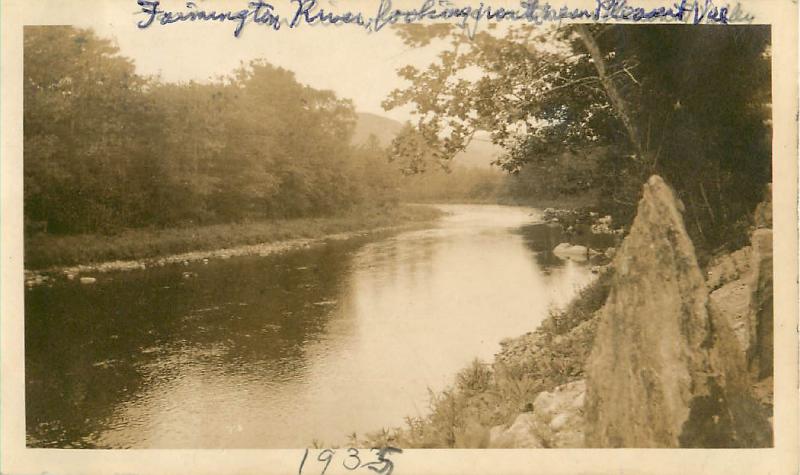 Farmington River, looking north near Pleasant Valley
1935